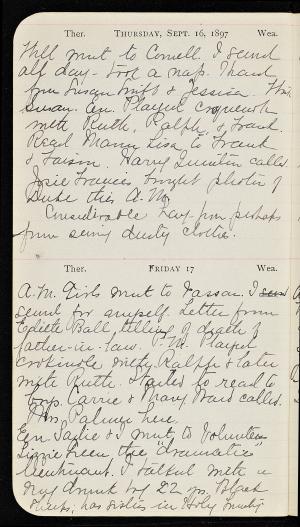 Ther. THURSDAY, SEPT. 16, 1897 Wea.
Will went to Cornell. I sewed
all day – took a nap. Heard
from Susan Swift & Jessica. 
Susan. Eve. Played croquenole
with Ruth, Ralph, & Frank.
Read Mona Lisa to Frank
& Harry called
Josie Francis brought photos of
Duke this A.M.
Considerable hay-fever perhaps
from sewing dusty clothes.
Ther. FRIDAY 17 Wea.
A.M. Girls went to Vassar. I sewed
sewed for myself. Letter from
Ball, telling of death of
father-in-law. P.M. Played
crokinole with Ralph & later
with Ruth. Started to read to
boys. Carrie & Mary Ward called.
Mrs. Palmer here.
Eve. Sadie & I went to Volunteers
Lizzie Green the dramatic
Lieutenant. I talked with a
drunk by 22 yrs. Black
has sister in Holy Trinity